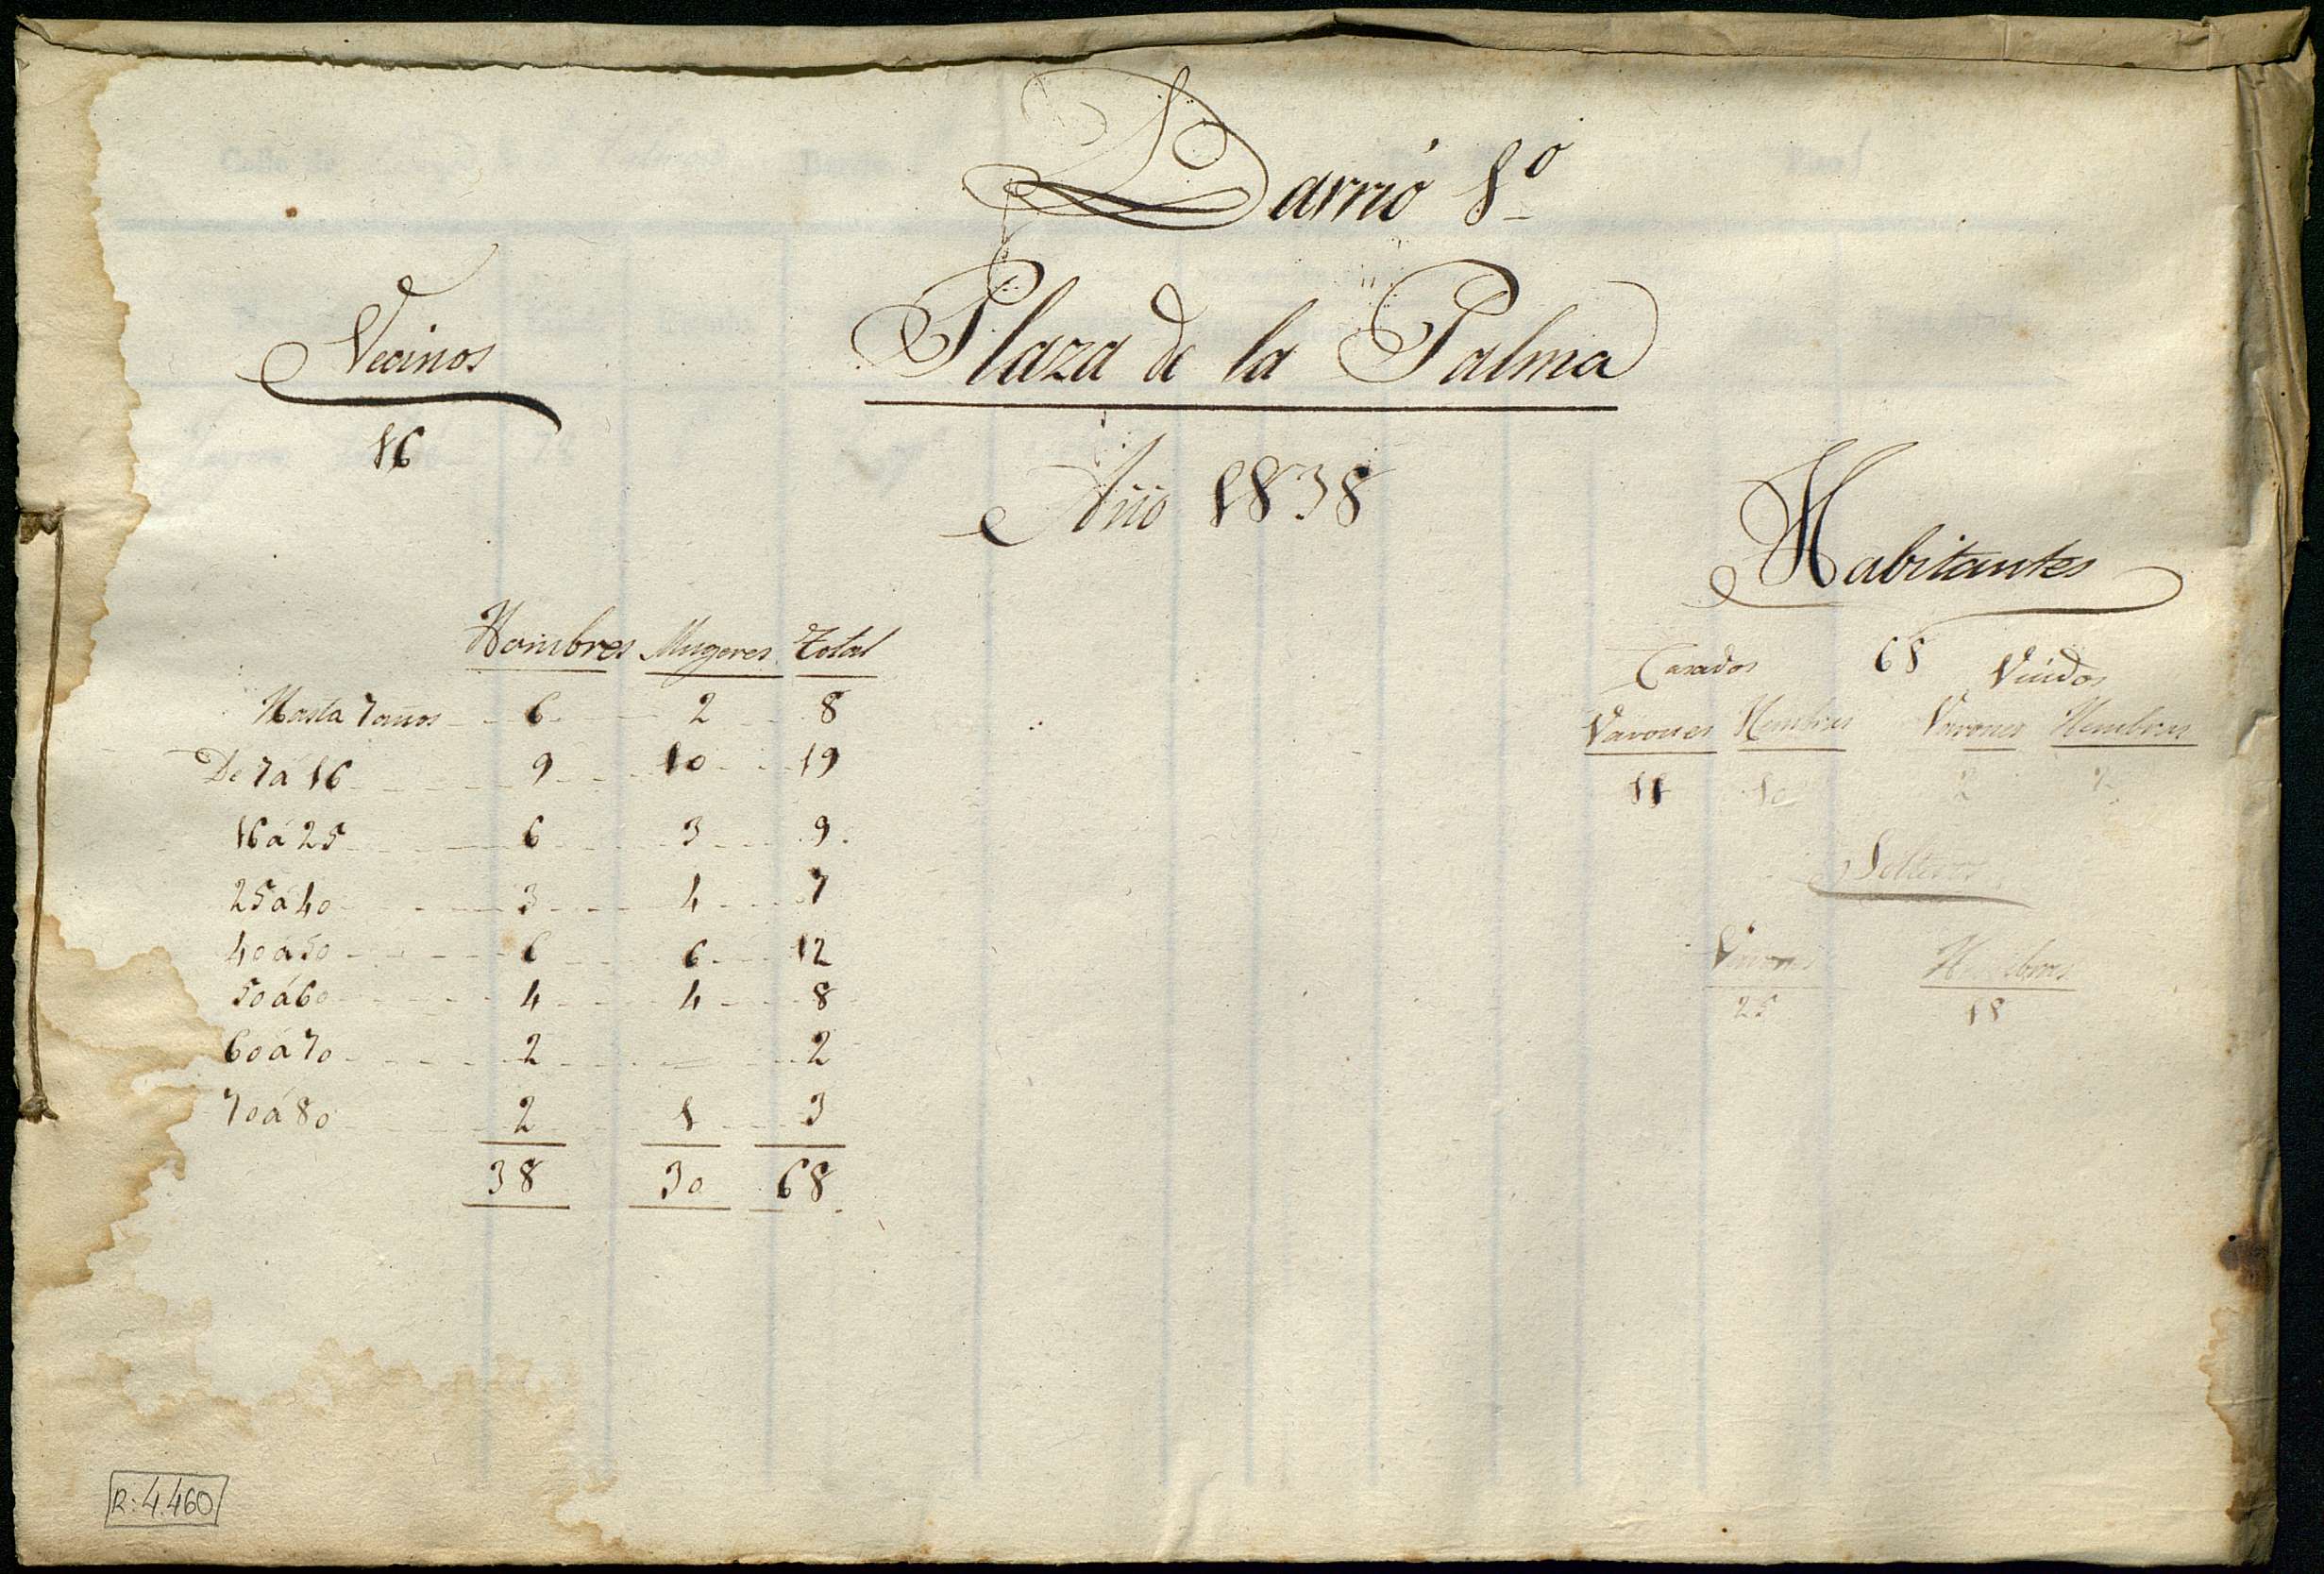 Barrio 1º
Plaza de la Palma
Vecinos
16
Año 1838
Habitantes
68
Hombres Mugeres Total
Hasta 7 años 6 2 8
De 7 á 16 9 10 19
16 á 25 6 3 9
25 á 40 3 4 7
40 á 50 6 6 12
50 á 60 4 4 8
60 á 70 2 2
70 á 80 2 1 3
38 30 68
Casados Viudos
Varones Hembras Varones Hembras
11 10 2 2
Solteros
Varones Hembras
25 18
R: 4.460